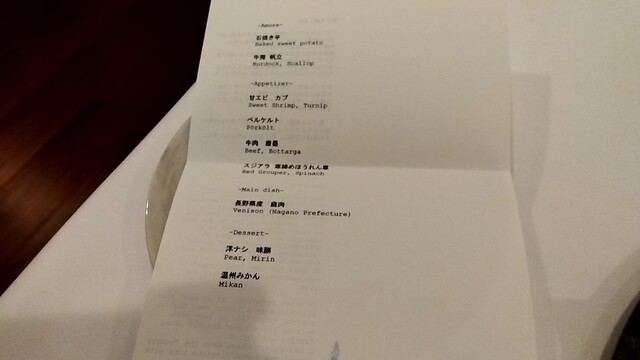 -Amuse-
石焼き芋
Baked sweet potato
牛蒡 帆立
Burdock, Scallop
-Appetizer-
甘エビ カブ
Sweet Shrimp, Turnip
ペルケルト
Pörkölt
牛肉
Beef, Bottarga
スジアラ 寒締めほうれん草
Red Grouper, Spinach
-Main dish-
長野県産 鹿肉
Venison (Nagano Prefecture)
-Dessert-
洋ナシ 味醂
Pear, Mirin
温州みかん
Mikan